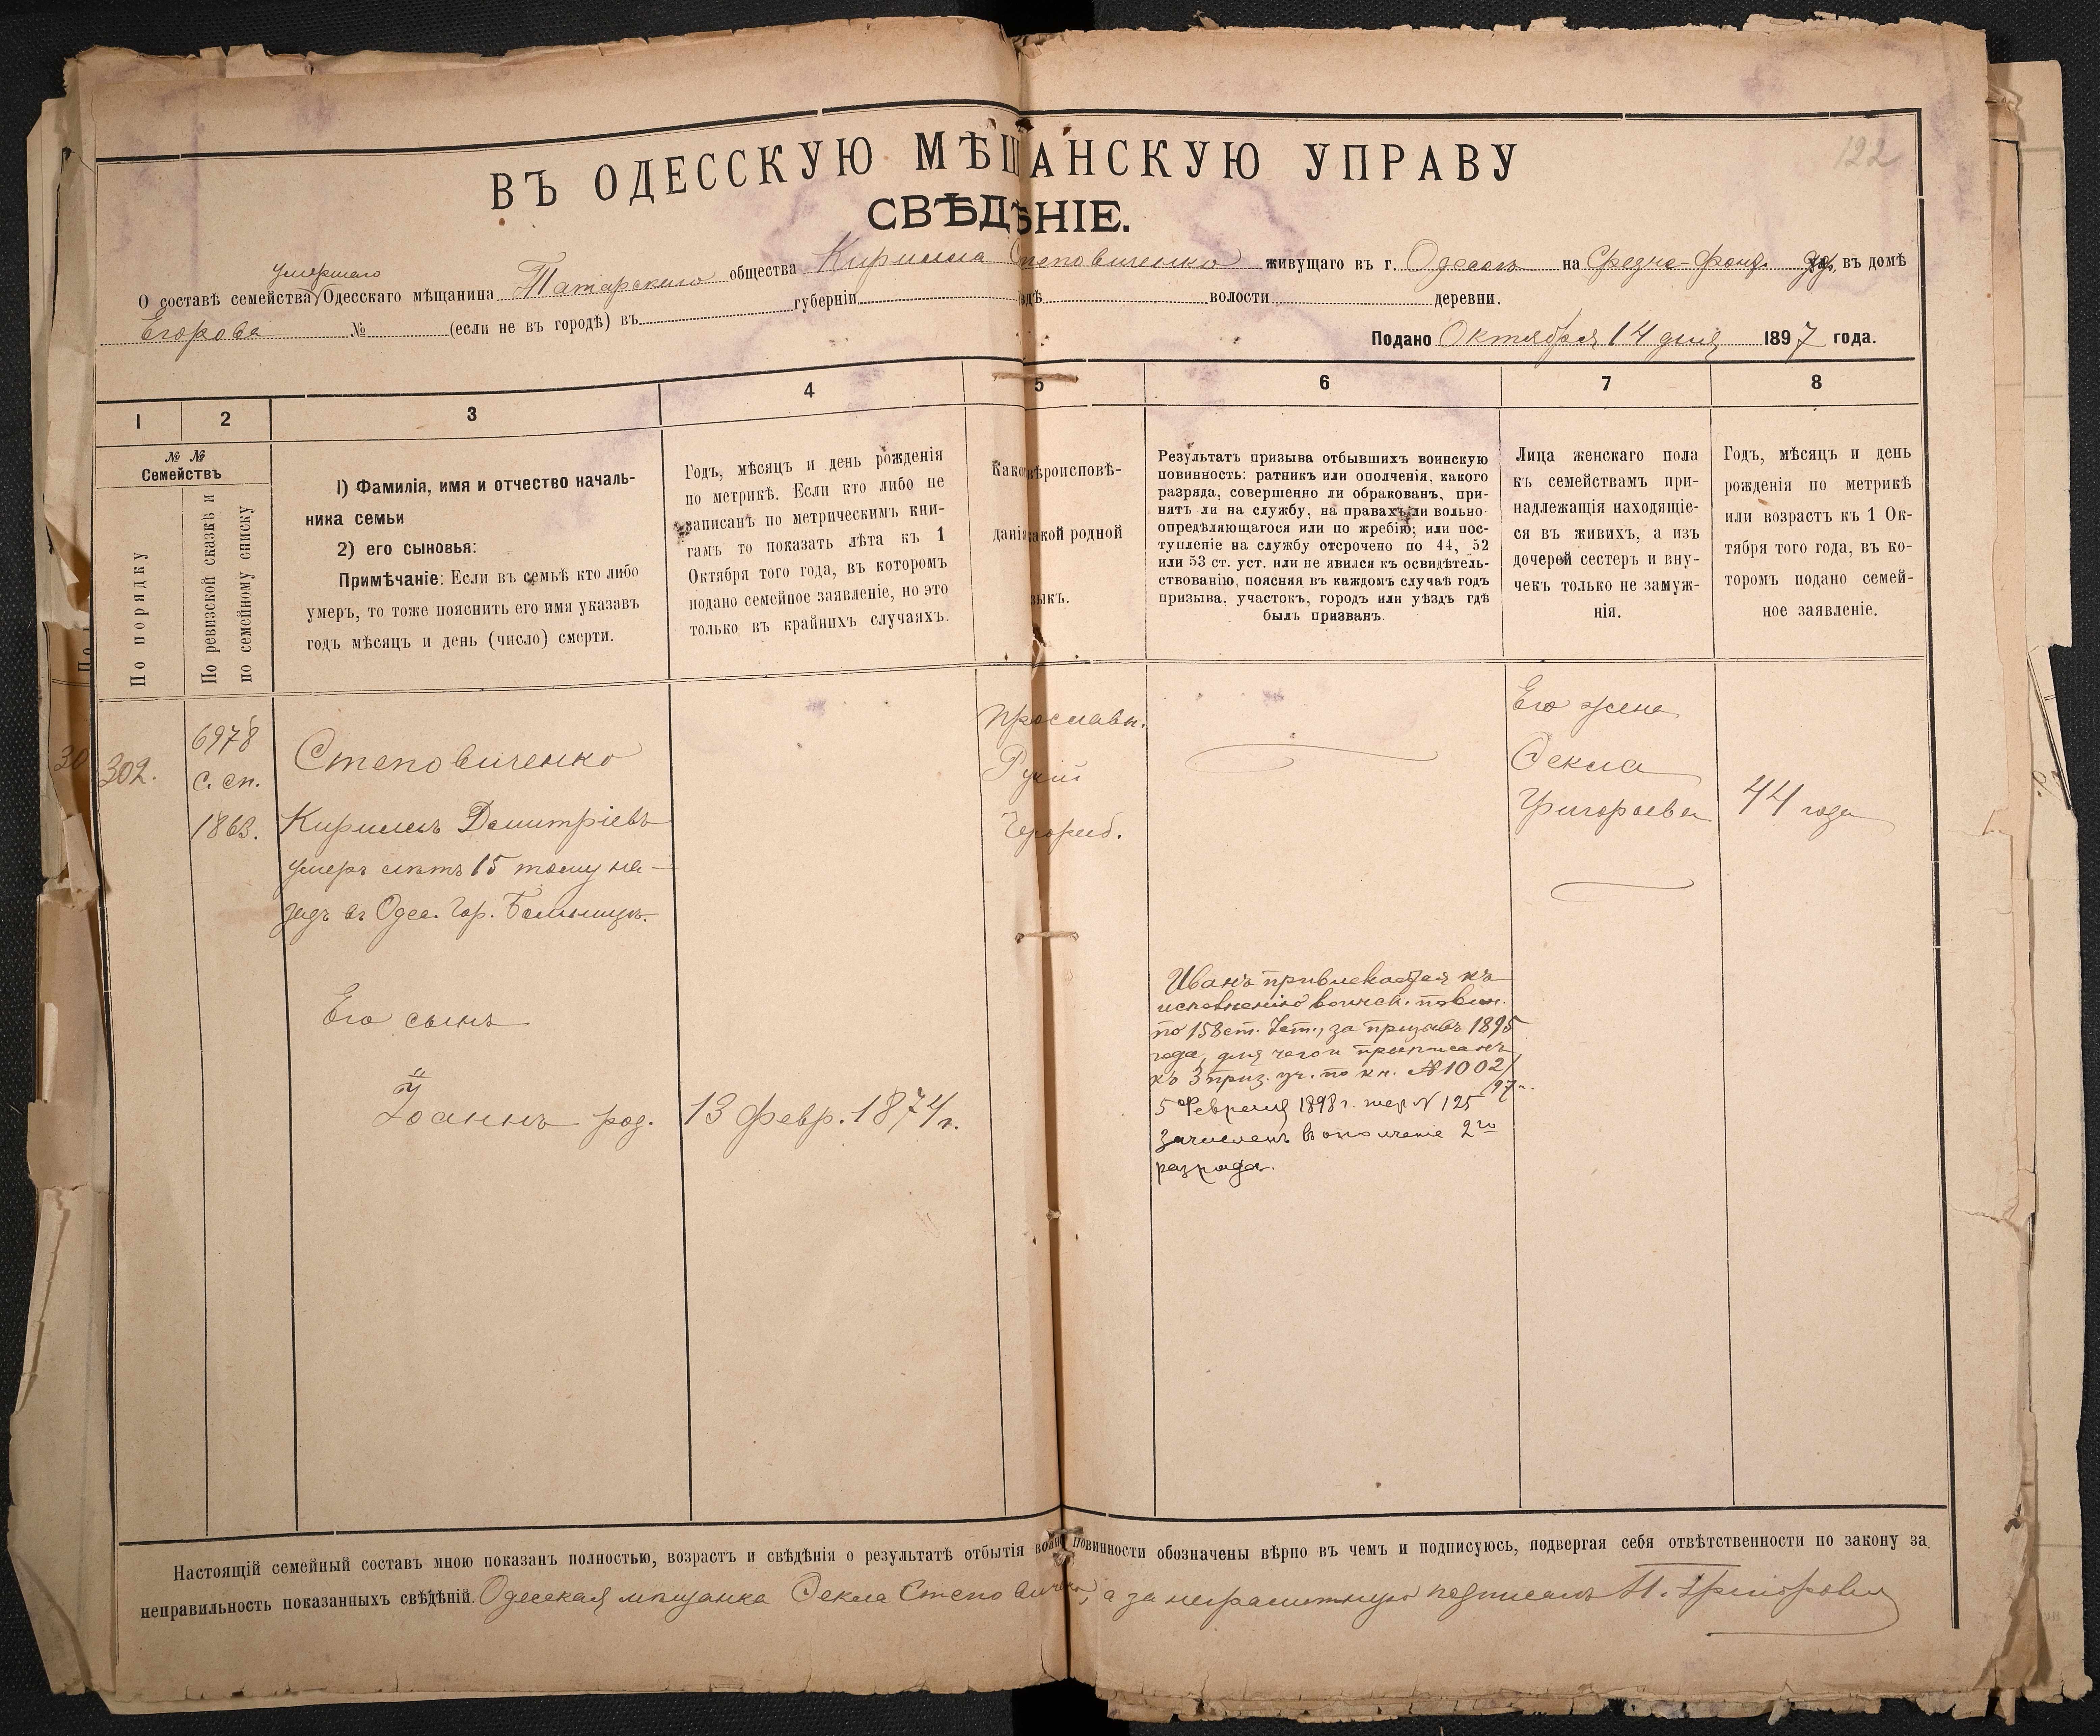 122
ВЪ ОДЕССКУЮ МѢЩАНСКУЮ УПРАВУ
СВѢДѢНІЕ.
умершаго
О составѣ семейства Одесскаго мѣщанина Татарскаго общества Кирилла Степовиченко живущаго въ г. Одессѣ на Средне-Фонт. въ домѣ
Егорова № (если не въ городѣ) въ губерніи волости деревни.
Подано Октября 14 дня 1897 года.
1 2 3 4 5 6 7 8
№ №
Семействъ
По порядку
По ревизской сказкѣ и
по семейному списку
1) Фамилія, имя и отчество началь-
ника семьи
2) его сыновья:
Примѣчаніе: Если въ семьѣ кто либо
умеръ, то тоже пояснить его имя указавъ
годъ мѣсяцъ и день (число) смерти.
Годъ, мѣсяцъ и день рожденія
по метрикѣ. Если кто либо не
записанъ по метрическимъ кни-
гамъ то показать лѣта къ 1
Октября того года, въ которомъ
подано семейное заявленіе, но это
только въ крайнихъ случаяхъ.
Како вѣроисповѣ-
данія какой родной
зыкъ.
Результатъ призыва отбывшихъ воинскую
повинность: ратникъ или ополченія, какого
разряда, совершенно ли обракованъ, при-
нятъ ли на службу, на правахъ ли вольно-
опредѣляющагося или по жребію; или пос-
тупленіе на службу отсрочено по 44, 52
или 53 ст. уст. или не явился къ освидѣтель-
ствованію, поясняя въ каждомъ случаѣ годъ
призыва, участокъ, городъ или уѣздъ гдѣ
былъ призванъ.
Лица женскаго пола
къ семействамъ при-
надлежащія находящіе-
ся въ живихъ, а изъ
дочерей сестеръ и вну-
чекъ только не замуж-
нія.
Годъ, мѣсяцъ и день
рожденія по метрикѣ
или возрастъ къ 1 Ок-
тября того года, въ ко-
торомъ подано семей-
ное заявленіе.
302.
6978
с. сп.
1863.
Степовиченко
Кириллъ Димитріевъ
умеръ лѣтъ 15 тому на-
задъ въ Одес. Гор. Больницѣ.
Его сынъ
Іоаннъ род.
13 Февр. 1874 г.
Православн.
Рускій
Иванъ привлекается къ
исполненію воинск. повин.
по 158 ст. Уст., за призывъ 1895
года, для чего и приписанъ
къ 3 приз. уч. по кн. № 1002/
97 г.
5 Февраля 1898 г. жер № 125
зачисленъ въ ополченіе 2го
разряда.
Его жена
Секла
Григорьева
44 года
Настоящій семейный составъ мною показанъ полностью, возрастъ и свѣдѣнія о результатѣ отбытія воин повинности обозначены вѣрно въ чемъ и подписуюсь, подвергая себя отвѣтственности по закону за
неправильность показанныхъ свѣдѣній. Одесская мѣщанка Секла Степовиченко, а за неграмотную подписалъ